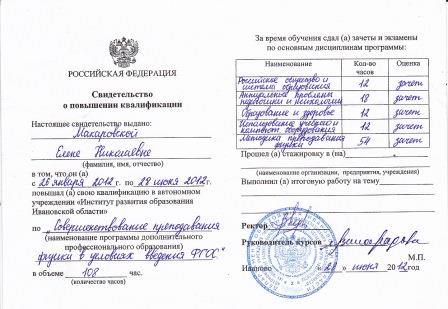 РОССИЙСКАЯ ФЕДЕРАЦИЯ
Свидетельство
о повышении квалификации
Настоящее свидетельство выдано:
Макаровской
Елене Николаевне
(фамилия, имя, отчество)
в том, что он (а)
с 26 января 2012 г. по 28 июня 2012 г.
повышал (а) свою квалификацию в автономном
учреждении «Институт развития образования
Ивановской области»
по „Совершенствование преподавания
(наименование программы дополнительного
профессионального образования)
физики в условиях введения ФГОС"
в объеме 108 час.
(количество часов)
За время обучения сдал (а) зачеты и экзамены
по основным дисциплинам программы:
Наименование Кол-во часов Оценка
Российское общество и система образования 12 зачет
Актуальные проблемы педагогики и психологии 18 зачет
Образование и здоровье 12 зачет
Использование учебного и компьют. оборудования 12 зачет
Методика преподавания физики 54 зачет
Прошел (а) стажировку в (на)
(наименование организации, предприятия, учреждения)
Выполнил (а) итоговую работу на тему
Ректор
Руководитель курсов Виноградова
М.П.
Иваново «28» июня 2012 год